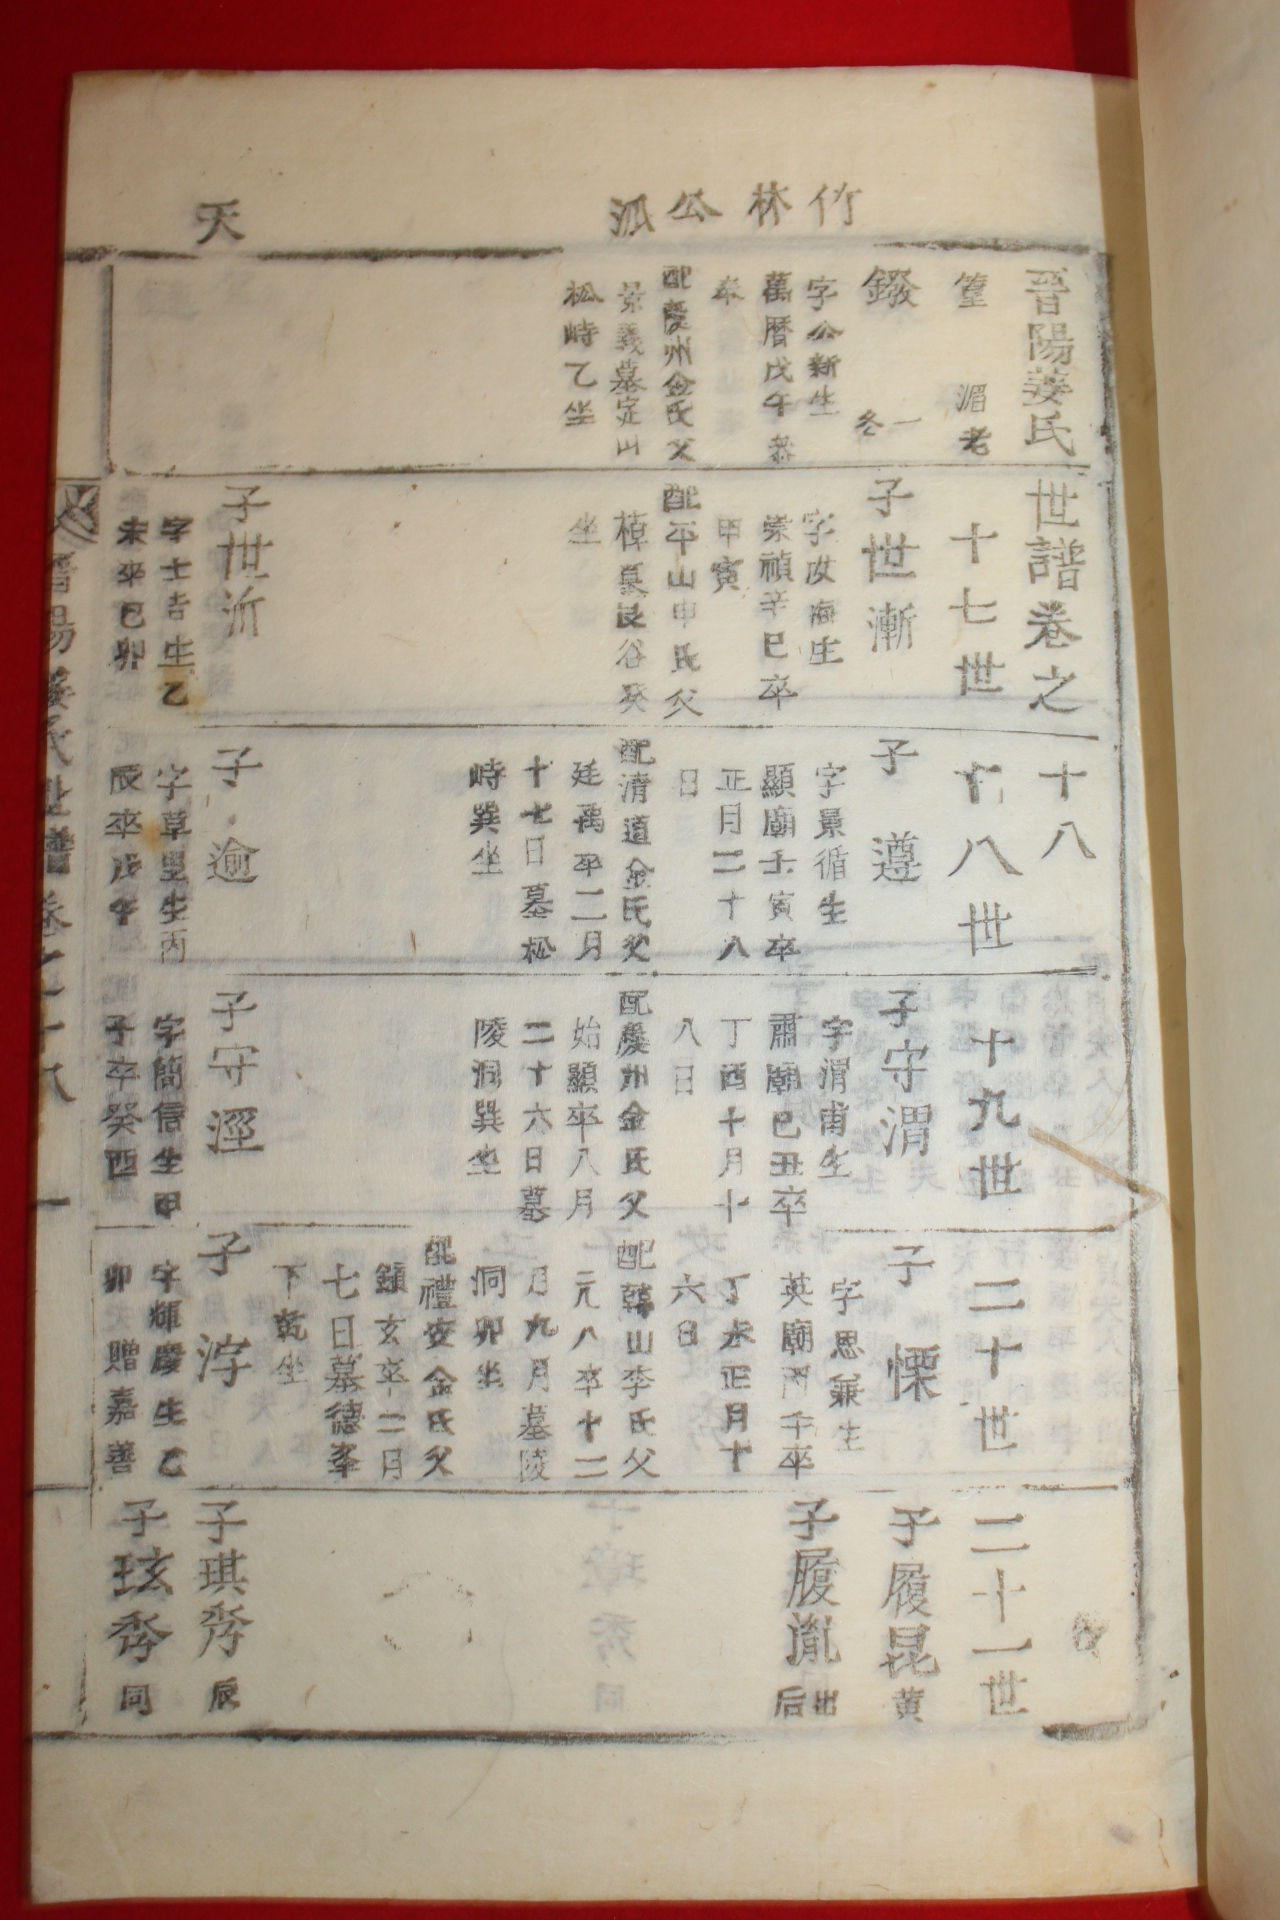 竹林公派
天
晉陽姜氏世譜卷之十八
篁 湄老
十七世
十八世
十九世
二十世
二十一世
鏺
一
字公新生
萬曆戊午
配慶州金氏父
景義墓定山
松峙乙坐
子世漸
字汝海生
崇禎辛巳卒
甲寅
配平山申氏父
樟墓艮谷癸
坐
子遵
字景循生
顯廟壬寅卒
正月二十八
日
配清道金氏父
廷禹卒二月
十七日墓松
峙巽坐
子守渭
字渭甫生
肅廟己丑卒
丁酉十月十
八日
配慶州金氏父
始顯卒八月
二十六日墓
陵洞巽坐
子慄
字思兼生
英廟丙午卒
丁未正月十
六日
配韓山李氏父
元八卒十二
月九月墓陵
洞卯坐
配禮安金氏父
鎮玄卒二月
七日墓德峯
下乾坐
子履昆 黄
子履胤 出后
子世沂
字士吉生乙
未卒己卯
子逾
字草里生丙
辰卒戊午
子守涇
字簡信生甲
子卒癸酉
子浡
字輝慶生乙
卯 贈嘉善
子琪秀 辰
子玹秀 同
晉陽姜氏世譜卷之十八 一